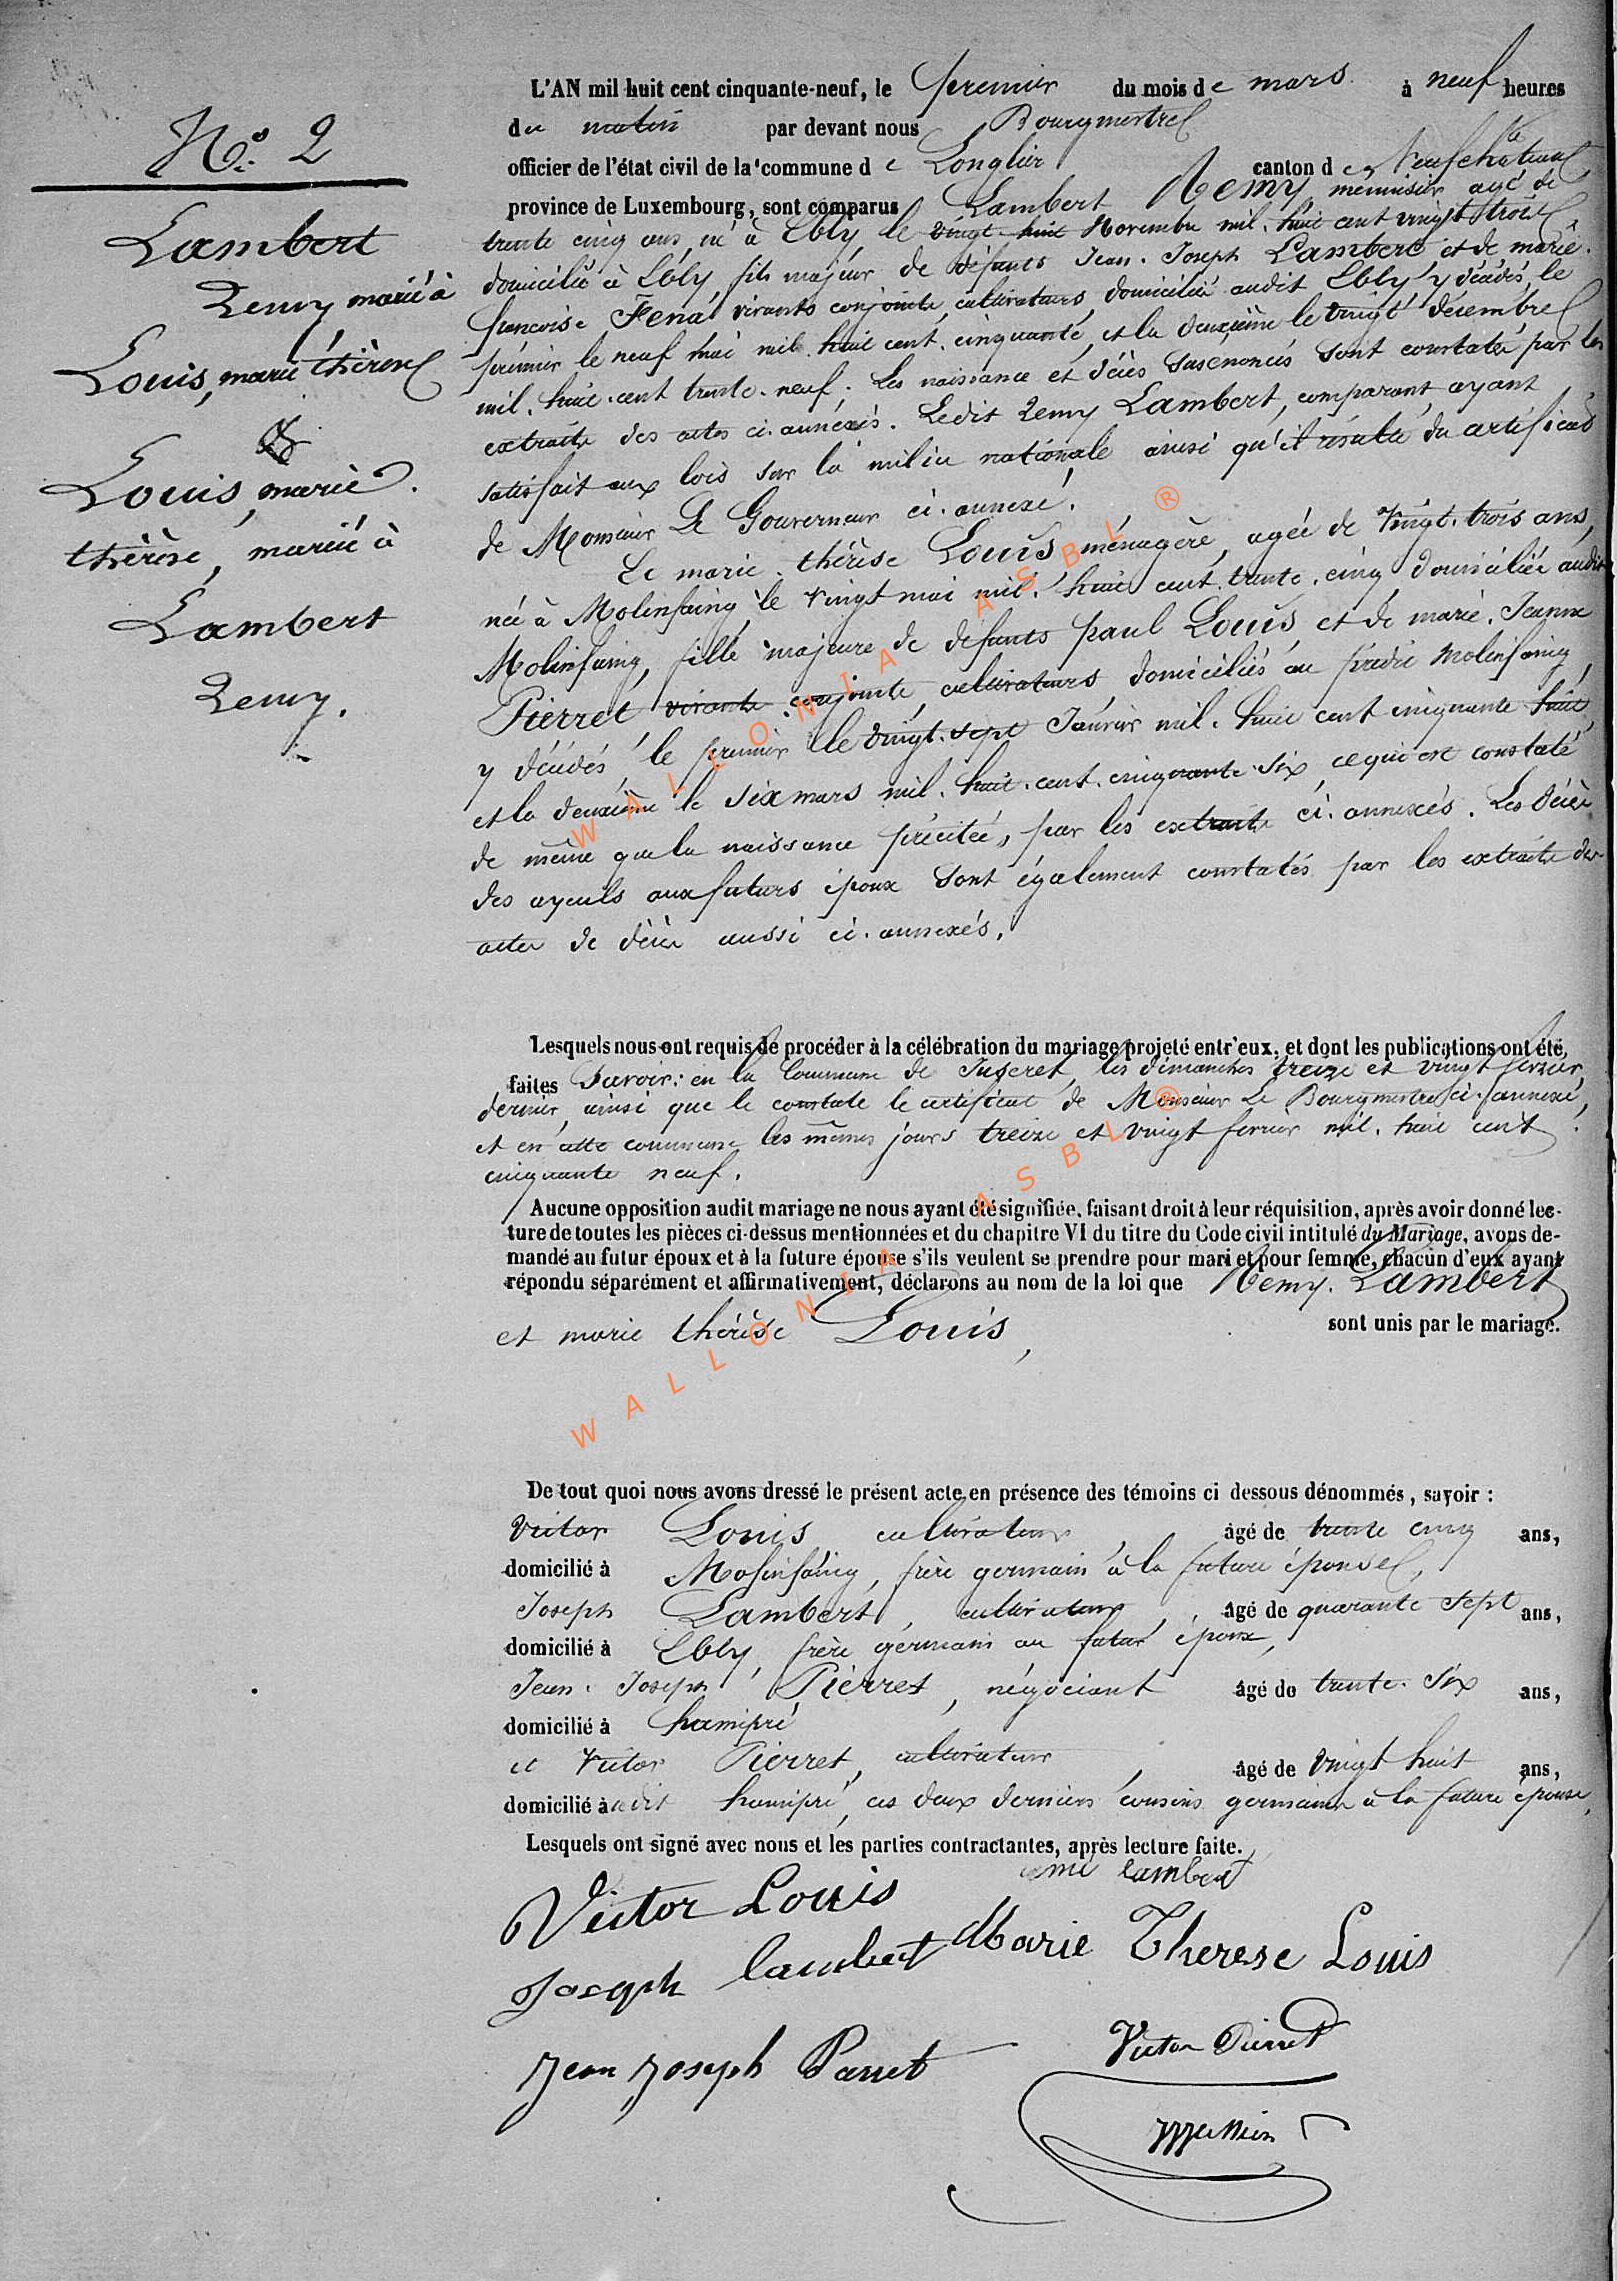 N° 2
Lambert
Remy marié à
Louis, marie thérèse
&
Louis, marie
thérèse, mariée à
Lambert
Remy.
L'AN mil huit cent cinquante-neuf, le premier du mois de mars à neuf heures
du matin par devant nous Bourgmestre
officier de l'état civil de la commune de Longlier canton de Neufchâteau
province de Luxembourg, sont comparus Lambert Remy, menuisier agé de
trente cinq ans, né à Ebly, le vingt-huit Novembre mil. huit cent vingt trois,
domicilié à Ebly, fils majeur de défunts Jean. Joseph Lambert et de marie.
francoise Fena vivants conjoints, cultivateurs, domiciliés audit Ebly y décédés, le
prémier le neuf mai mil. huit cent. cinquante, et la deuxième le vingt décembre
mil. huit. cent trente. neuf; Les naissance et décès susénoncés sont constatés par les
extraits des actes ci. annéxés. Ledit Remy Lambert, comparant, ayant
satisfait aux lois sur la milice nationale ainsi qu'il résulte du certificat
de Monsieur Le Gouverneur ci. annexé.
Et marie. thérèse Louis ménagère, agée de vingt. trois ans,
née à Molinfaing, le vingt mai mil. huit cent. trente. cinq domiciliée audit
Molinfaing, fille majeure de défunts paul Louis et de marie. Jeanne
Pierret vivants conjoints, cultivateurs, domiciliés au prédit Molinfaing,
y décédés, le premier le vingt. sept Janvier mil. huit cent cinquante huit,
et la deuxième le six mars mil. huit. cent. cinquante. six, ce qui est constaté
de même que la naissance précitée, par les extraits ci. annexés. Les décès
des ayeuls aux futurs époux sont également constatés par les extraits des
actes de décès aussi ci. annexés.
Lesquels nous ont requis de procéder à la célébration du mariage projeté entr'eux, et dont les publications ont été
faites Savoir: en la Commune de Juseret, les dimanches treize et vingt février,
dernier, ainsi que le constate le certificat de Monsieur Le Bourgmestre ci. annexé,
et en cette commune les mêmes jours treize et vingt fevrier mil. huit cent
cinquante neuf.
Aucune opposition audit mariage ne nous ayant été signifiée, faisant droit à leur réquisition, après avoir donné lec-
ture de toutes les pièces ci-dessus mentionnées et du chapitre VI du titre du Code civil intitulé du Mariage, avons de-
mandé au futur époux et à la future épouse s'ils veulent se prendre pour mari et pour femme, chacun d'eux ayant
répondu séparément et affirmativement, déclarons au nom de la loi que Remy. Lambert
et marie thérèse Louis, sont unis par le mariage.
De tout quoi nous avons dressé le présent acte en présence des témoins ci dessous dénommés, savoir :
Victor Louis cultivateur, âgé de trente cinq ans,
domicilié à Molinfaing, frère germain à la future épouse,
Joseph Lambert, cultivateur, âgé de quarante sept ans,
domicilié à Ebly, frère germain au futur époux,
Jean. Joseph Pierret, négociant âgé de trente. six ans,
domicilié à hamipré
et Victor Pierret, cultivateur, âgé de vingt huit ans,
domicilié à udit hamipré, ces deux derniers cousins germains à la future épouse,
Lesquels ont signé avec nous et les parties contractantes, après lecture faite.
Victor Louis
lambert
Joseph lambert
Marie Therese Louis
Jean Joseph Pierret
Victor Pierret
WALLONIA ASBL ®
WALLONIA ASBL ®